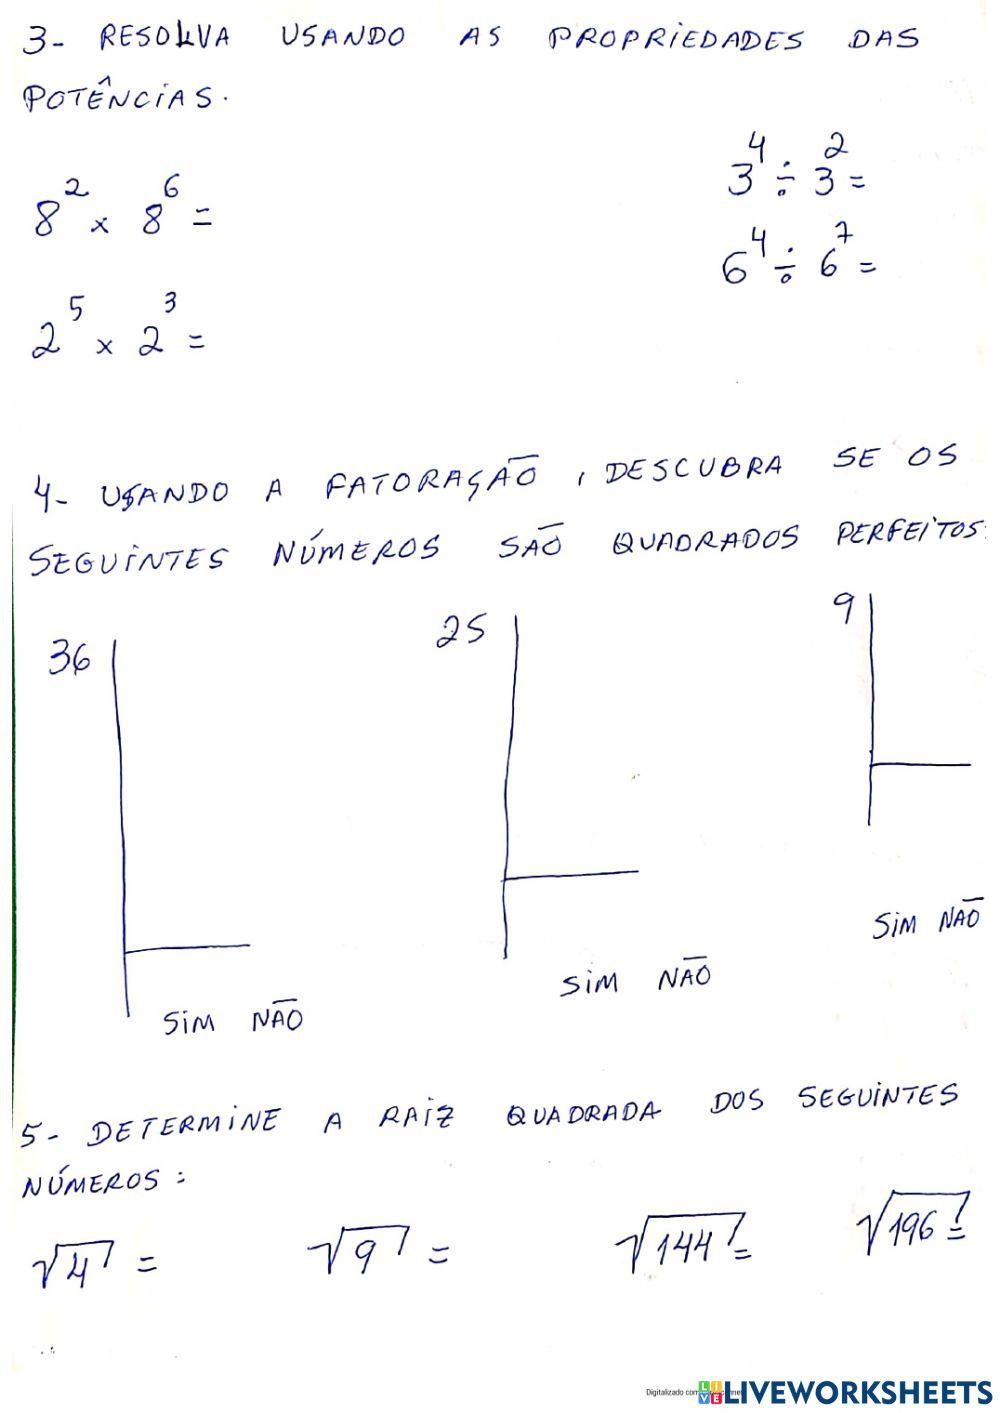 3- RESOLVA USANDO AS PROPRIEDADES DAS
POTÊNCIAS.
8² x 8⁶ =
3⁴ ÷ 3² =
6⁴ ÷ 6⁷ =
2⁵ x 2³ =
4- USANDO A FATORAÇÃO, DESCUBRA SE OS
SEGUINTES NÚMEROS SÃO QUADRADOS PERFEITOS:
36
25
9
SIM NÃO
SIM NÃO
SIM NÃO
5- DETERMINE A RAIZ QUADRADA DOS SEGUINTES
NÚMEROS:
√4 =
√9 =
√144 =
√196 =
Digitalizado com
LIVEWORKSHEETS